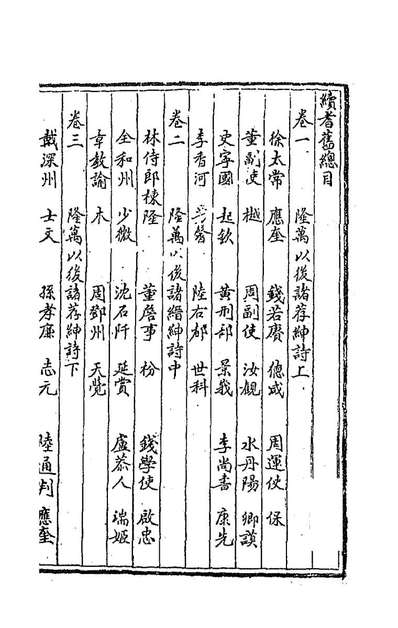 續耆舊總目
卷一 隆萬以後諸荐紳詩上
徐太常 應奎 錢若賡 德威 周運使 保
董副使 樾 周副使 汝觀 水丹陽 卿謨
史寧國 起欽 黃刑部 景莪 李尚書 康先
李香河 陸右都 世科
卷二 隆萬以後諸縉紳詩中
林侍郎 棟隆 董詹事 枌 錢學使 啟忠
全和州 少微 沈石阡 延賞 盧恭人 瑞姬
章教諭 木 周鄧州 天覺
卷三 隆萬以後諸荐紳詩下
戴深州 士文 孫孝廉 志元 陸通判 應奎